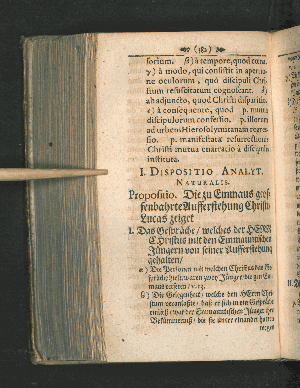 (182)
sorium. β) à tempore, quod cœna.
γ) à modo, qui consistit in apertio-
ne oculorum, quo discipuli Chri-
stum resuscitatum cognoscant. δ)
ab adjuncto, quod Christi disparitio.
ε) à consequente, quod p. mutu
discipulorum confessio. p. illorum
ad urbem Hierosolymitanam regres-
sio. p. manifestatæ resurrectionis
Christi mutua enarratio à discipulis
instituta.
I. DISPOSITIO ANALYT.
NATURALIS.
Propositio. Die zu Emmaus geof-
fenbahrte Aufferstehung Christi
Lucas zeiget
I. Das Gespräche / welches der HERR
Christus mit den Emmauntischen
Jüngern von seiner Aufferstehung
gehalten /
α) Die Personen mit welchen Christus das Ge-
spräche hielt waren zwey Jünger die
β) Die Gelegenheit / welche den HErrn Chri-
stum veranlaßte / daß er sich in ein Gespräche
einließ / war der Emauntischen Jünger
Bekümmerniß / die sie unter einander hatten